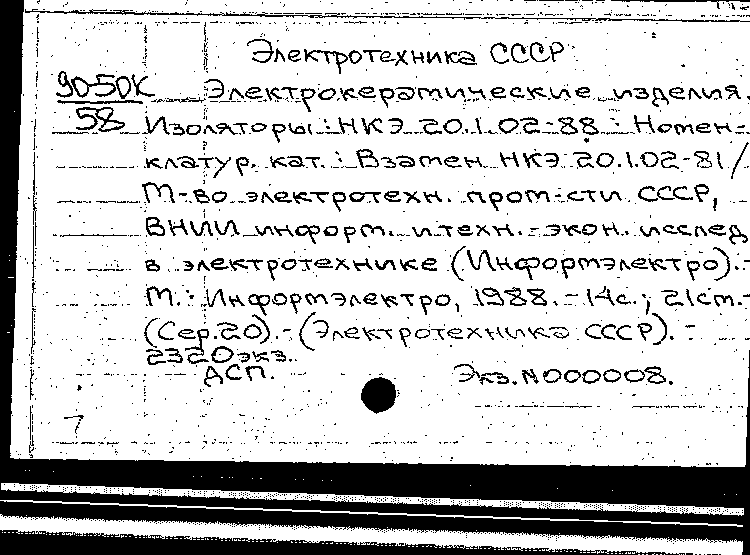 Электротехника СССР
90-50К Электрокерамические изделия.
58 Изоляторы : НКЭ 20.1.02-88 : Номен-
клатур. кат. : Взамен НКЭ 20.1.02-81 /
М-во электротехн. пром-сти СССР,
ВНИИ информ. и техн.-экон. исслед
в электротехнике (Информэлектро).-
М. : Информэлектро, 1988. - 14с.; 21см.-
(Сер.20). - (Электротехника СССР). -
2320экз.
ДСП. Экз. N000008.
7